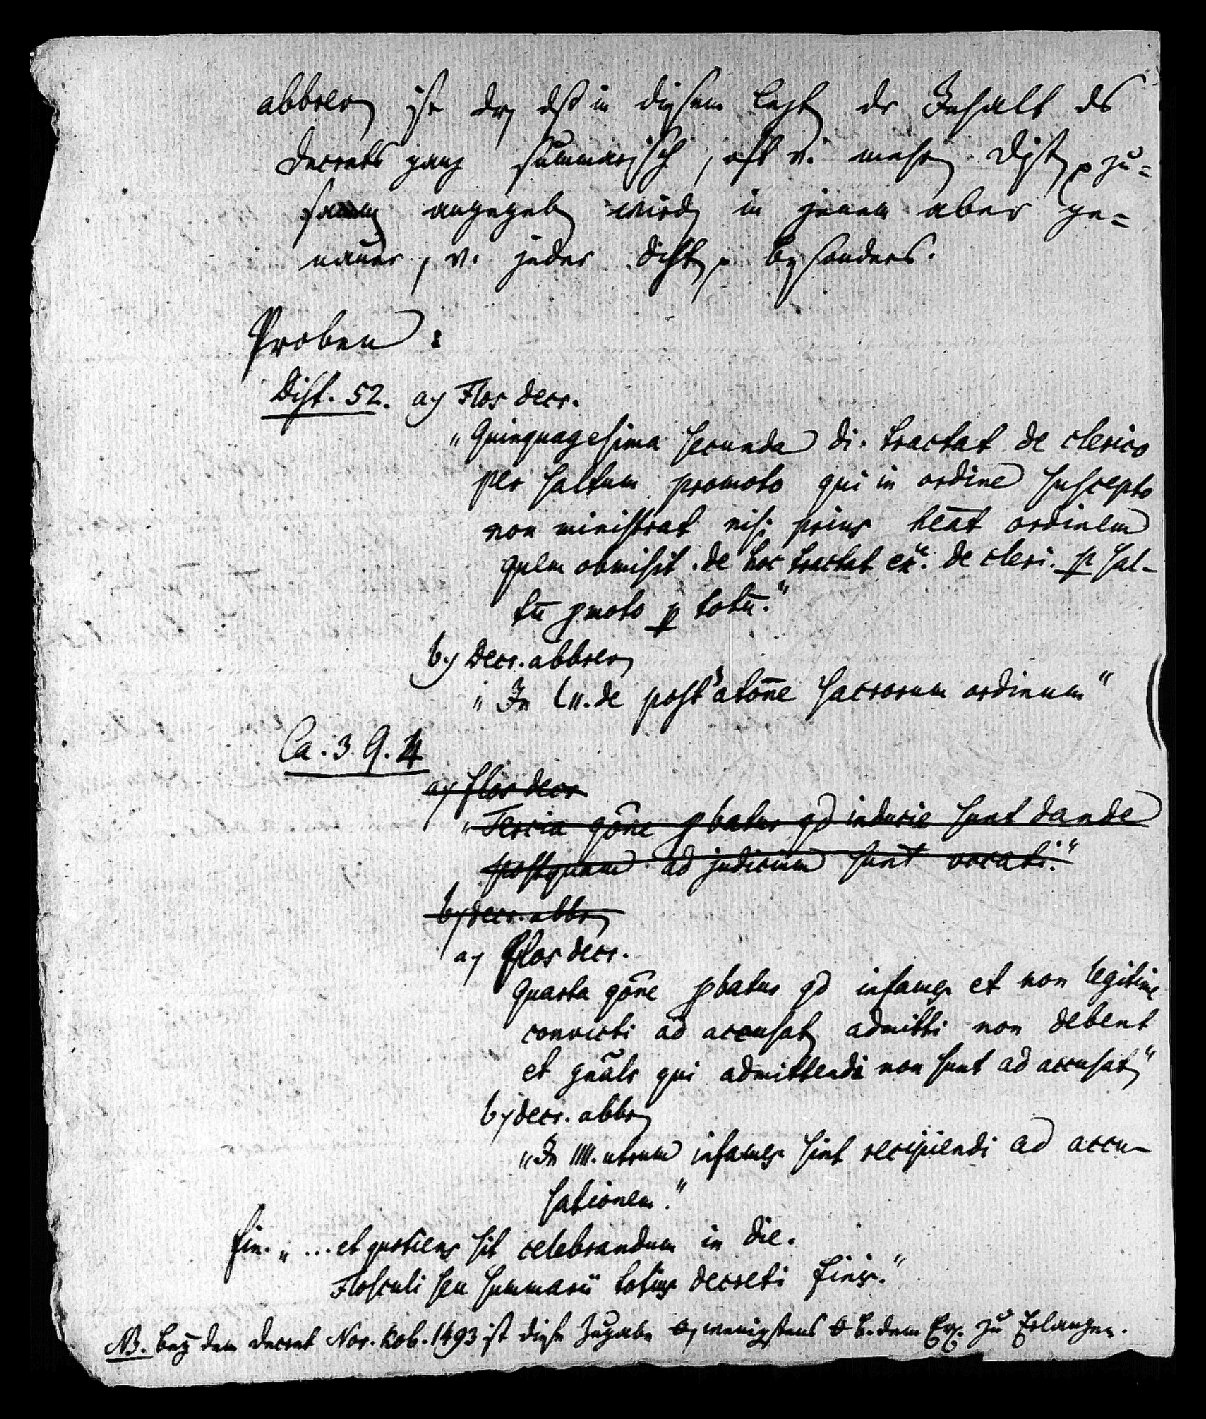 abbrev ist der, dß in diesem letzt der Inhalt des
Decrets ganz summarisch, oft v. mehr Dist. zu=
samm angegeb wird, in jenem aber ge=
nauer, v. jeder Dist. besonders.
Proben:
Dist. 52. a) Flos decr.
„Quinquagesima secunda di. tractat de clerico
per saltum promoto qui in ordine suscepto
non ministrat nisi prius heat ordinem
quem obmisit. de hoc tractat ex. de cleri. p sal-
tū pmoto p totū.“
b) Decr. abbrev
„In lii. de postatōne sacrorum ordinum“
Ca. 3. Q. 4
a) flos decr
„Tercia qōne pbatur qd inducie sunt dande
postquam ad judicium sunt vocati.“
b) decr. abbr
a) Flos decr.
Quarta qōne pbatur qd infames et non legitime
convicti ad accusat admitti non debent
et gnāls qui admittendi non sunt ad accusat“
b) decr. abbr
„In IIII. utrum infames sint recipiendi ad accu-
sationem.“
fin. „... et quotiens sit celebrandum in die.
Flosculi seu summarii totius decreti finis.“
NB. bey dem Decret Nor. Kob. 1493 ist diese Zugabe wenigstens b. dem Ex. zu Erlangen.